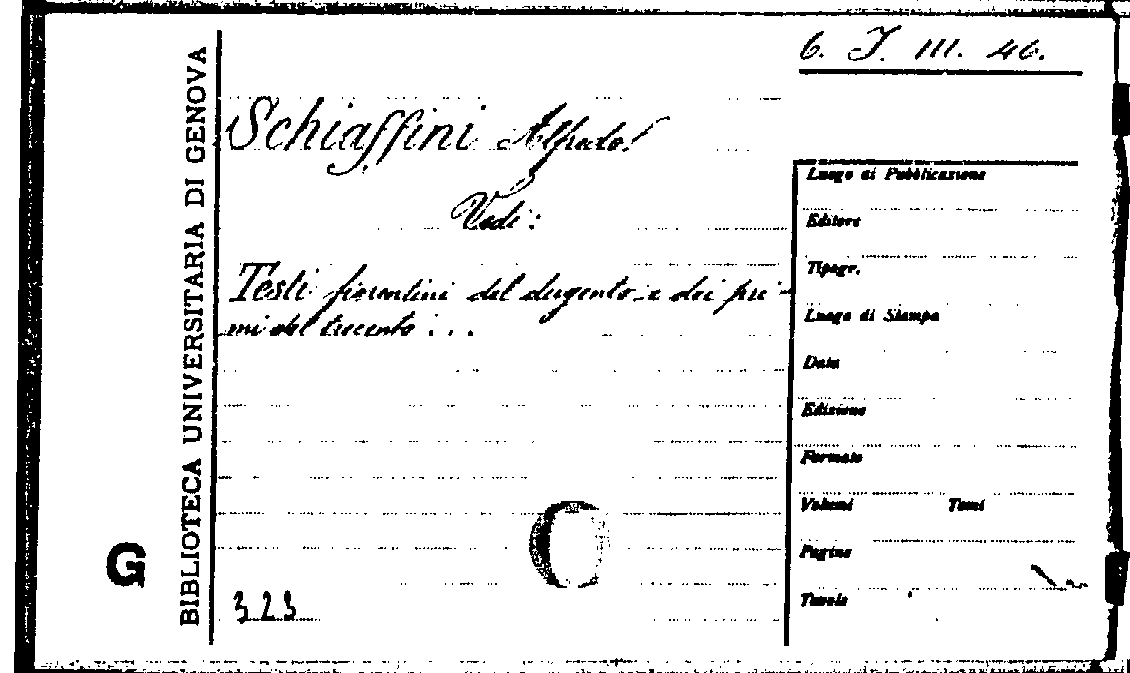 6. I. III. 46.
BIBLIOTECA UNIVERSITARIA DI GENOVA
G
Schiaffini Alfredo.
Vedi:
Testi fiorentini del dugento e dei pri-
mi del trecento...
323
Luogo di Pubblicazione
Editore
Tipogr.
Luogo di Stampa
Data
Edizione
Formato
Volumi Tomi
Pagine
Tavole